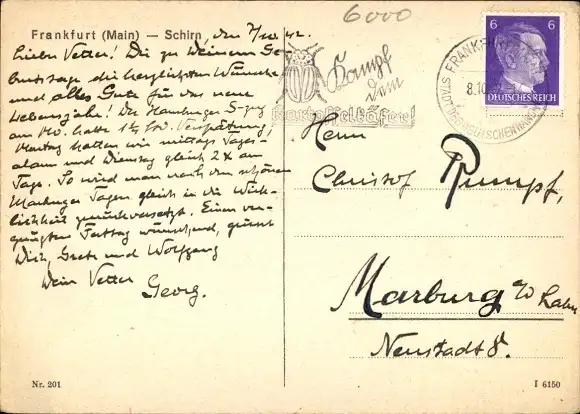 6000
Frankfurt (Main) — Schirn, den 7/10.42.
Lieber Vetter! Die zu Deinem Ge-
burtstage die herzlichsten Wünsche
und alles Gute für das neue
Lebensjahr! Der Hamburger D-Zug
am Mo. hatte 1½ Std. Verspätung,
Montag hatten wir mittags Tages-
alarm und Dienstag gleich 2 x am
Tage. So wird man nach den schönen
Marburger Tagen gleich in die Wirk-
lichkeit zurückversetzt. Einen ver-
gnügten Festtag wünschend, grüsst
Dich, Grete und Wolfgang
Dein Vetter
Georg.
Kampf
dem
Kartoffelkäfer!
FRANKFURT
8.10.
6 6
DEUTSCHES REICH
Herrn
Christof Rumpf,
Marburg a/d Lahn
Neustadt 8.
Nr. 201
I 6150